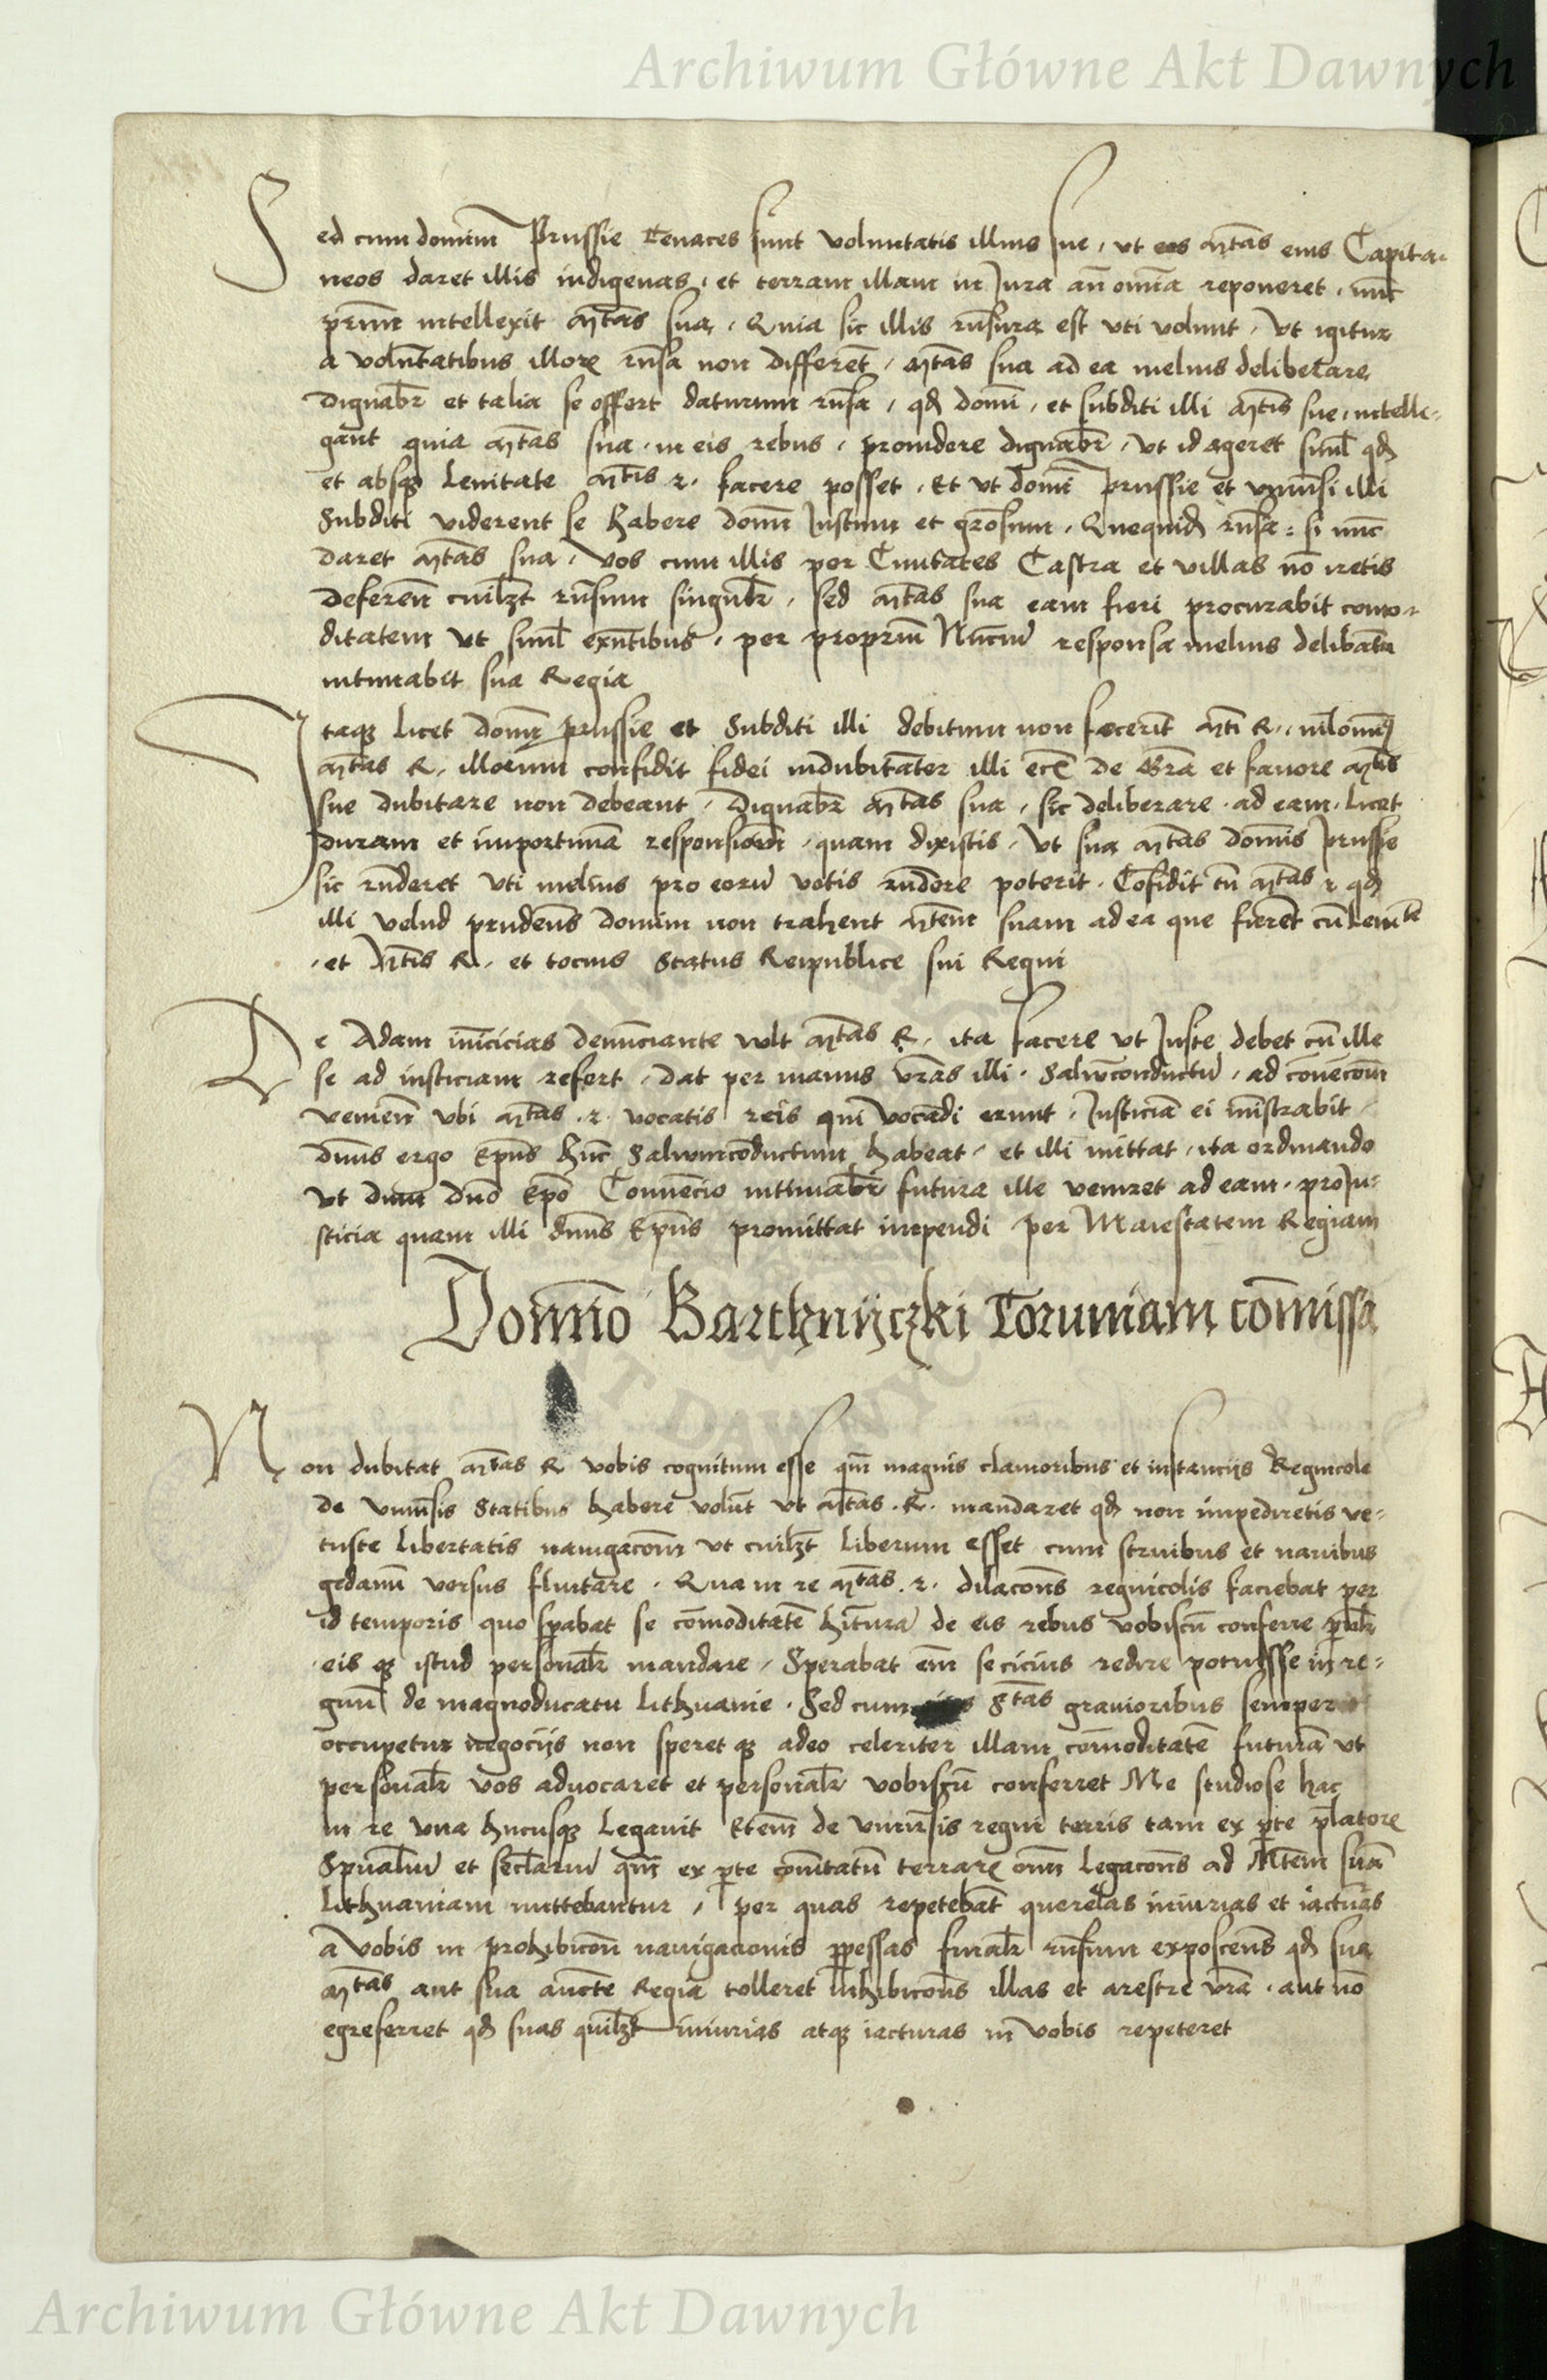 Archiwum Główne Akt Dawnych
Sed cum domini Prussie tenaces sunt voluntatis illius sue, ut eos M̄tas eius Capita-
neos daret illis indigenas, et terram illam in Jura an̄ omīa reponeret, nūc
primū intellexit M̄tas sua, Quia sic illis rn̄sura est uti volunt, Ut igitur
a volūtatibus illoꝝ rn̄sa non differēt, M̄tas sua ad ea melius deliberare
dignabr̄ et talia se offert daturum rn̄sa, qd̄ domī, et subditi illi M̄tis sue, intelle-
gant quia M̄tas sua, in eis rebus, providere dignabr̄, ut id ageret siml̄ qd̄
et absqꝫ levitate M̄tis r. facere posset, Et ut domī Prussie et univ̄si illi
Subditi viderent se habere domī Justum et gr̄osum, Quequid̄ rn̄sa: si nūc
daret M̄tas sua, vos cum illis per Civitates Castra et villas nō iretis
deferēn cuilꝫt rn̄sum singulr̄, sed M̄tas sua eam fieri procurabit como-
ditatem ut siml̄ exn̄tibus, per propriū Nunciū responsa melius delibāta
intimabit sua Regia
Itaqꝫ licet Domī Prussie et Subditi illi debitum non fecerīt M̄ti R., nilominꝯ
M̄tas R. illorum confidit fidei indubitāter illi ec̄ de Gr̄a et favore M̄tis
sue dubitare non debeant, Dignabr̄ M̄tas sua, sic deliberare, ad eam, licet
duram et importunā responsionē, quam dixistis, Ut sua M̄tas domīs Prussie
sic rn̄deret uti melius pro eorū votis rn̄dere poterit. Cōfidit tn̄ M̄tas r qd̄
illi velud prudens domini non trahent M̄tem suam ad ea que fierēt cū levitate
et M̄tis R. et tocius Status Reipublice sui Regni
De Adam inicicias denunciante vult M̄tas R., ita facere ut Juste debet cū ille
se ad iusticiam refert, dat per manus vr̄as illi, Salvūconductū, ad convēcōm
veniēn ubi M̄tas r. vocatis reis qui vocādi erunt, Justiciā ei mīstrabit
dn̄us ergo Ep̄us hūc Salvumcōductum habeat, et illi mittat, ita ordinando
ut dum dn̄o Ep̄o Convēcio intimabr̄ futura ille veniret ad eam, pro Ju-
sticia quam illi dn̄us Ep̄us promittat impendi per Maiestatem Regiam
Domīo Barthnijczki Toruniam cōmissa
Non dubitat M̄tas R vobis cognitum esse qm̄ magnis clamoribus et instancijs Regnicole
de univ̄sis Statibus habere volūt ut M̄tas R. mandaret qd̄ non impediretis ve-
tuste libertatis navigacōm ut cuilꝫt liberum esset cum struibus et navibus
gedanū versus fluitare. Qua in re M̄tas r. dilacōns regnicolis faciebat per
id temporis quo sp̄abat se cōmoditatē hituram de eis rebus vobiscū conferre
eis qꝫ istud personalr̄ mandare, Sperabat em̄ se cicius redire potuisse in re-
gnū de magnoducatu Lithuanie. Sed cum S̄tas gravioribus semper
occupetur negocijs non speret qꝫ adeo celeriter illam cōmoditatē futurā ut
personalr̄ vos advocaret et personalr̄ vobiscū conferret Me studiose hac
in re una hucusqꝫ legavit Etem̄ de univ̄sis regni terris tam ex p̄te p̄latoꝝ
Sp̄ualiū et sec̄lariū qm̄ ex p̄te comitatū terraꝝ om̄ legacōns ad M̄tem suā
Lithuaniam mittebantur, per quas repetebāt querelas iniurias et iacturas
a vobis in prohibicōn navigacionis p̄pessas finalr̄ rn̄sum exposcens qd̄ sua
M̄tas aut sua aucte Regia tolleret inhibicōns illas et arestre vr̄a, aut nō
egreferret qd̄ suas quilꝫt iniurias atqꝫ iacturas in vobis repeteret
Archiwum Główne Akt Dawnych